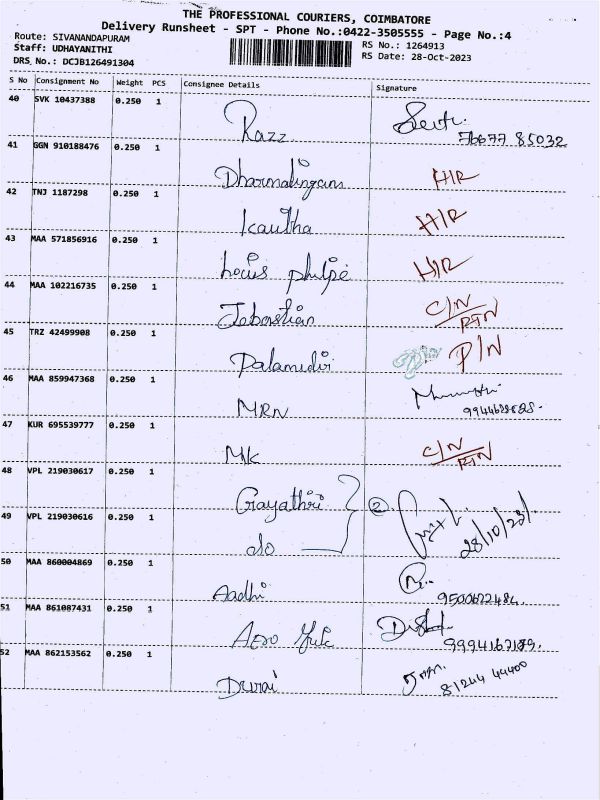 THE PROFESSIONAL COURIERS, COIMBATORE
Delivery Runsheet - SPT - Phone No.:0422-3505555 - Page No.:4
Route: SIVANANDAPURAM
RS No.: 1264913
Staff: UDHAYANITHI
RS Date: 28-Oct-2023
DRS No.: DCJB126491304
S No Consignment No Weight PCS Consignee Details Signature
40 SVK 10437388 0.250 1
Razz 76677 85032
41 GGN 910188476 0.250 1
Dharmalingam H/R
42 TNJ 1187298 0.250 1
Kavitha H/R
43 MAA 571856916 0.250 1
H/R
44 MAA 102216735 0.250 1
C/N
RTN
45 TRZ 42499908 0.250 1
P/N
46 MAA 859947368 0.250 1
MRN
47 KUR 695539777 0.250 1
MK C/N
RTN
48 VPL 219030617 0.250 1
Gayathri 2
49 VPL 219030616 0.250 1
do 28/10/23
50 MAA 860004869 0.250 1
Aadhi 9500622484
51 MAA 861087431 0.250 1
9994167189.
52 MAA 862153562 0.250 1
Durai 81244 44400